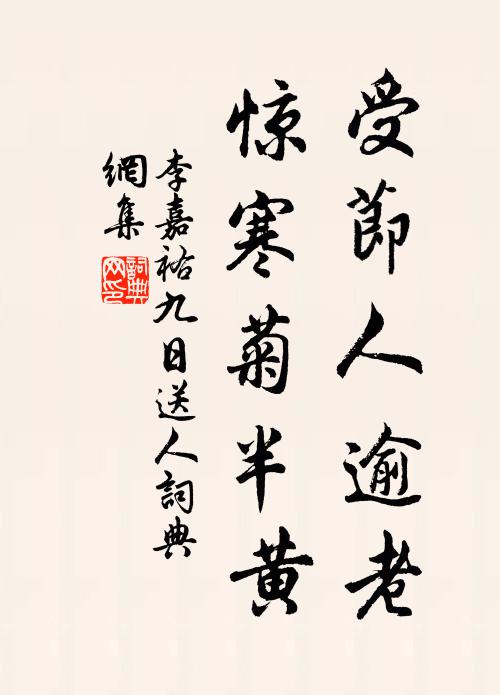 受節人逾老
惊寒菊半黄
李嘉祐九日送人詞典
網集
詞典
网印